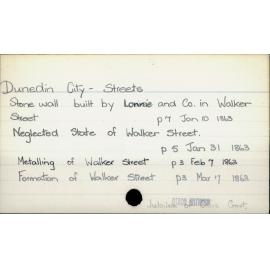 Dunedin City - Streets
Stone wall built by Lonnie and Co. in Walker
Street p7 Jan 10 1863
Neglected State of Walker Street.
p5 Jan 31 1863
Metalling of Walker Street p3 Feb 7 1863
Formation of Walker Street p3 Mar 7 1863